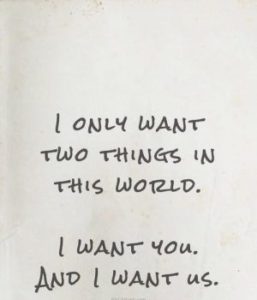 I ONLY WANT
TWO THINGS IN
THIS WORLD.
I WANT YOU.
AND I WANT US.